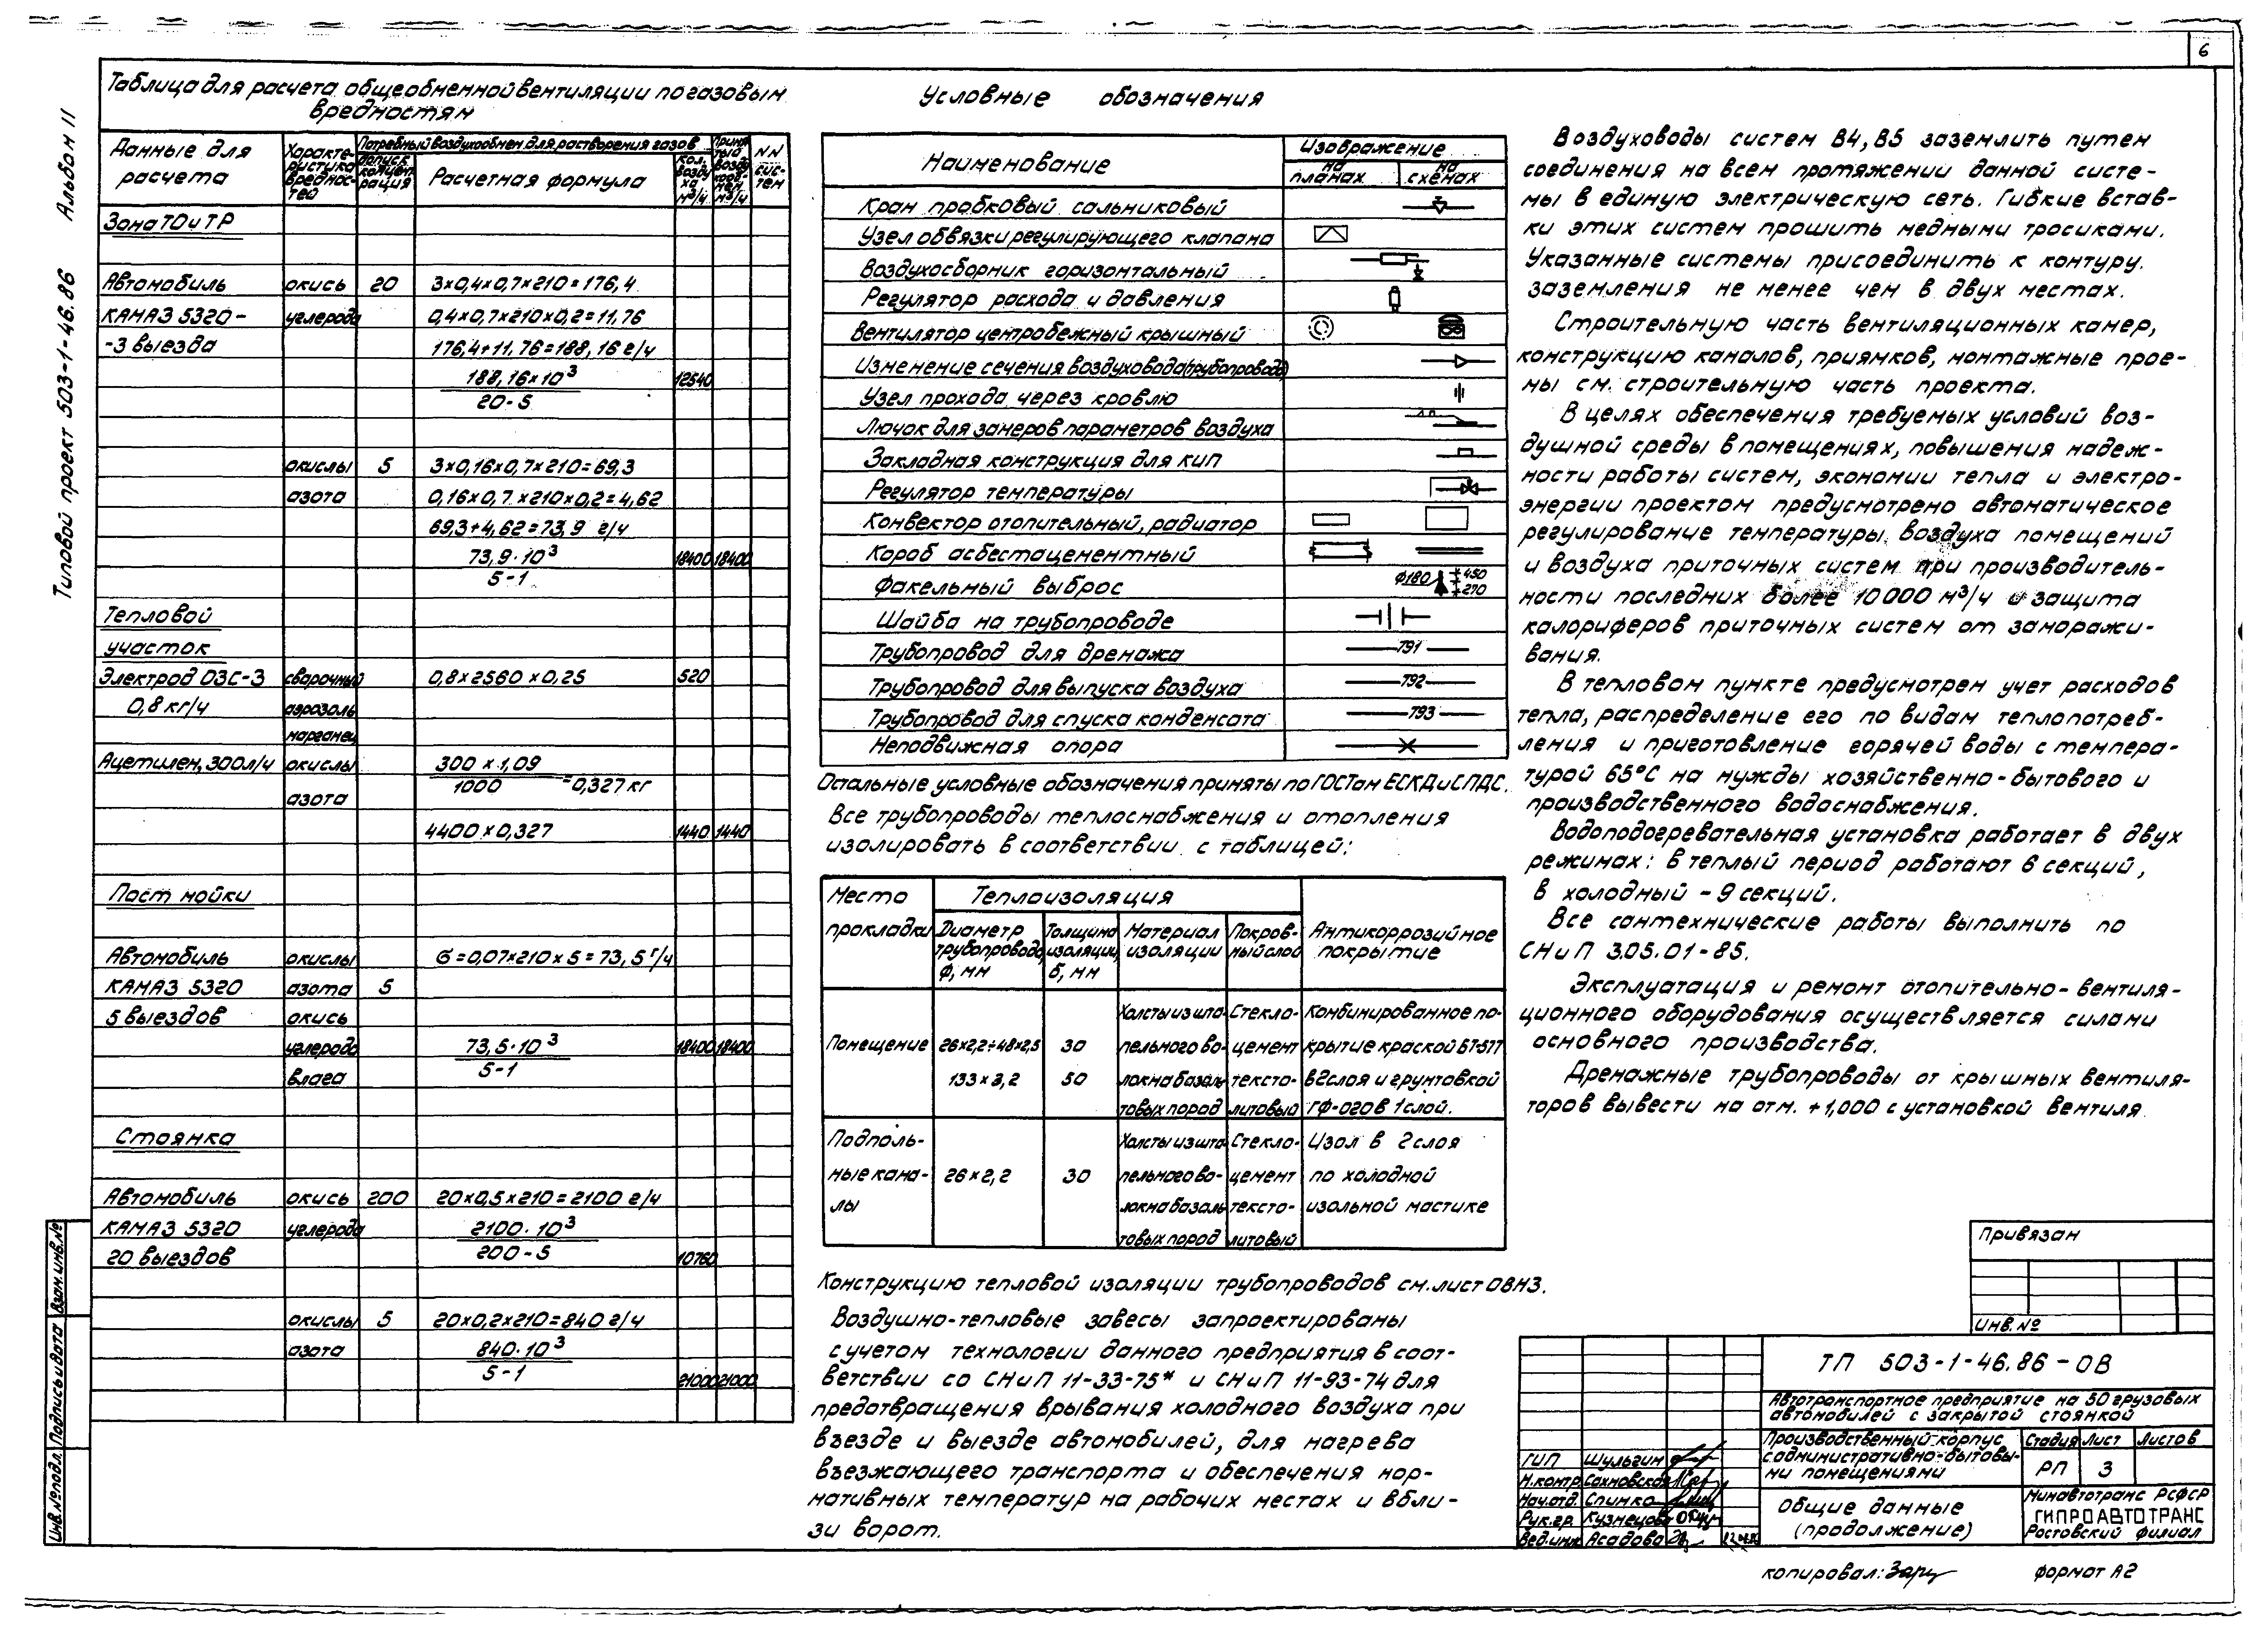 6
Альбом II
Типовой проект 503-1-46.86
Таблица для расчета общеобменной вентиляции по газовым
вредностям
Данные для расчета
Характеристика вредностей
Потребный воздухообмен для растворения газов
Допуск. концентрация
Расчетная формула
Кол. воздуха м³/ч
NN систем
Зона ТО и ТР
Автомобиль окись 20 3×0,4×0,7×210=176,4
КАМАЗ 5320- углерода 0,4×0,7×210×0,2=11,76
-3 выезда 176,4+11,76=188,16 г/ч
188,16×10³ 12540
20-5
окислы 5 3×0,16×0,7×210=69,3
азота 0,16×0,7×210×0,2=4,62
69,3+4,62=73,9 г/ч
73,9·10³ 18400 18400
5-1
Тепловой
участок
Электрод ОЗС-3 сварочный 0,8×2560×0,25 520
0,8 кг/ч аэрозоль
марганец
Ацетилен, 300л/ч окислы 300×1,09
азота 1000 =0,327 кг
4400×0,327 1440 1440
Пост мойки
Автомобиль окислы G=0,07×210×5=73,5 г/ч
КАМАЗ 5320 азота 5
5 выездов окись
углерода 73,5·10³ 18400 18400
влага 5-1
Стоянка
Автомобиль окись 200 20×0,5×210=2100 г/ч
КАМАЗ 5320 углерода 2100·10³
20 выездов 200-5 10760
окислы 5 20×0,2×210=840 г/ч
азота 840·10³
5-1 21000 21000
Условные обозначения
Наименование
Изображение
на планах
на схемах
Кран пробковый сальниковый
Узел обвязки регулирующего клапана
Воздухосборник горизонтальный
Регулятор расхода и давления
Вентилятор центробежный крышный
Изменение сечения воздуховода(трубопровода)
Узел прохода через кровлю
Лючок для замеров параметров воздуха
Закладная конструкция для КИП
Регулятор температуры
Конвектор отопительный, радиатор
Короб асбестацементный
Факельный выброс ф180 450 270
Шайба на трубопроводе
Трубопровод для дренажа Т91
Трубопровод для выпуска воздуха Т92
Трубопровод для спуска конденсата Т93
Неподвижная опора
Остальные условные обозначения приняты по ГОСТам ЕСКД и СПДС.
Все трубопроводы теплоснабжения и отопления
изолировать в соответствии с таблицей:
Место прокладки
Теплоизоляция
Диаметр трубопровода, ф, мм
Толщина изоляции, б, мм
Материал изоляции
Покровный слой
Антикоррозийное покрытие
Холсты из шта- Стекло- Комбинированное по-
Помещение 26×2,2÷48×2,5 30 пельного во- цемент крытие краской БТ-577
133×3,2 50 локна базаль- тексто- в 2 слоя и грунтовкой
товых пород литовый ГФ-020 в 1 слой.
Подполь- Холсты из шта- Стекло- Изол в 2 слоя
ные кана- 26×2,2 30 пельного во- цемент по холодной
лы локна базаль- тексто- изольной мастике
товых пород литовый
Конструкцию тепловой изоляции трубопроводов см. лист ОВН3.
Воздушно-тепловые завесы запроектированы
с учетом технологии данного предприятия в соот-
ветствии со СНиП II-33-75* и СНиП II-93-74 для
предотвращения врывания холодного воздуха при
въезде и выезде автомобилей, для нагрева
въезжающего транспорта и обеспечения нор-
мативных температур на рабочих местах и вбли-
зи ворот.
Воздуховоды систем В4, В5 заземлить путем
соединения на всем протяжении данной систе-
мы в единую электрическую сеть. Гибкие встав-
ки этих систем прошить медными тросиками.
Указанные системы присоединить к контуру
заземления не менее чем в двух местах.
Строительную часть вентиляционных камер,
конструкцию каналов, приямков, монтажные прое-
мы см. строительную часть проекта.
В целях обеспечения требуемых условий воз-
душной среды в помещениях, повышения надеж-
ности работы систем, экономии тепла и электро-
энергии проектом предусмотрено автоматическое
регулирование температуры воздуха помещений
и воздуха приточных систем при производитель-
ности последних более 10000 м³/ч и защита
калориферов приточных систем от заморажи-
вания.
В тепловом пункте предусмотрен учет расходов
тепла, распределение его по видам теплопотреб-
ления и приготовление горячей воды с темпера-
турой 65°С на нужды хозяйственно-бытового и
производственного водоснабжения.
Водоподогревательная установка работает в двух
режимах: в теплый период работают 6 секций,
в холодный - 9 секций.
Все сантехнические работы выполнить по
СНиП 3.05.01-85.
Эксплуатация и ремонт отопительно-вентиля-
ционного оборудования осуществляется силами
основного производства.
Дренажные трубопроводы от крышных вентиля-
торов вывести на отм. +1,000 с установкой вентиля.
Привязан
Инв.№
ТП 503-1-46.86-ОВ
Автотранспортное предприятие на 50 грузовых
автомобилей с закрытой стоянкой
Производственный корпус
с административно-бытовы-
ми помещениями
Стадия Лист Листов
РП 3
Общие данные
(продолжение)
Минавтотранс РСФСР
ГИПРОАВТОТРАНС
Ростовский филиал
ГИП Шульгин
Н.контр. Сахновская
Нач.отд. Спинко
Рук.гр. Кузнецова
Вед.инж. Асадова
Инв.№подл. Подпись и дата Взам.инв.№
копировал:
формат А2